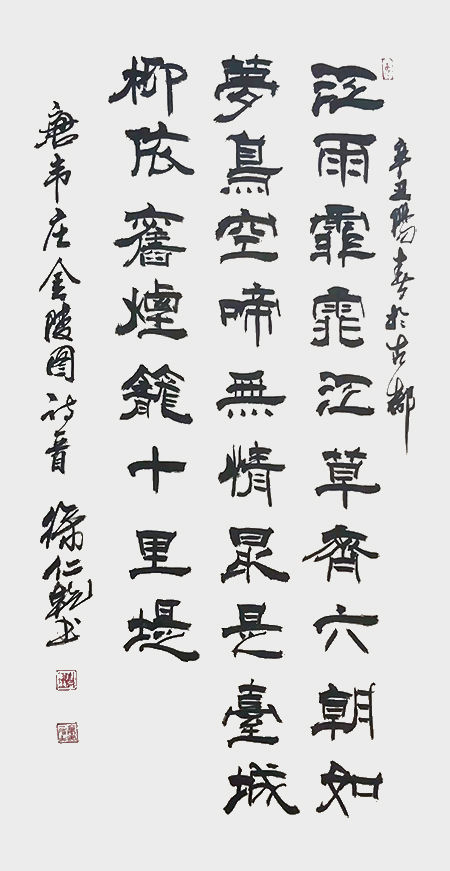 辛丑陽春於古都
江雨霏霏江草齊六朝如
夢鳥空啼無情最是臺城
柳依舊煙籠十里堤
唐韦庄金陵图诗一首 徐仁乾书